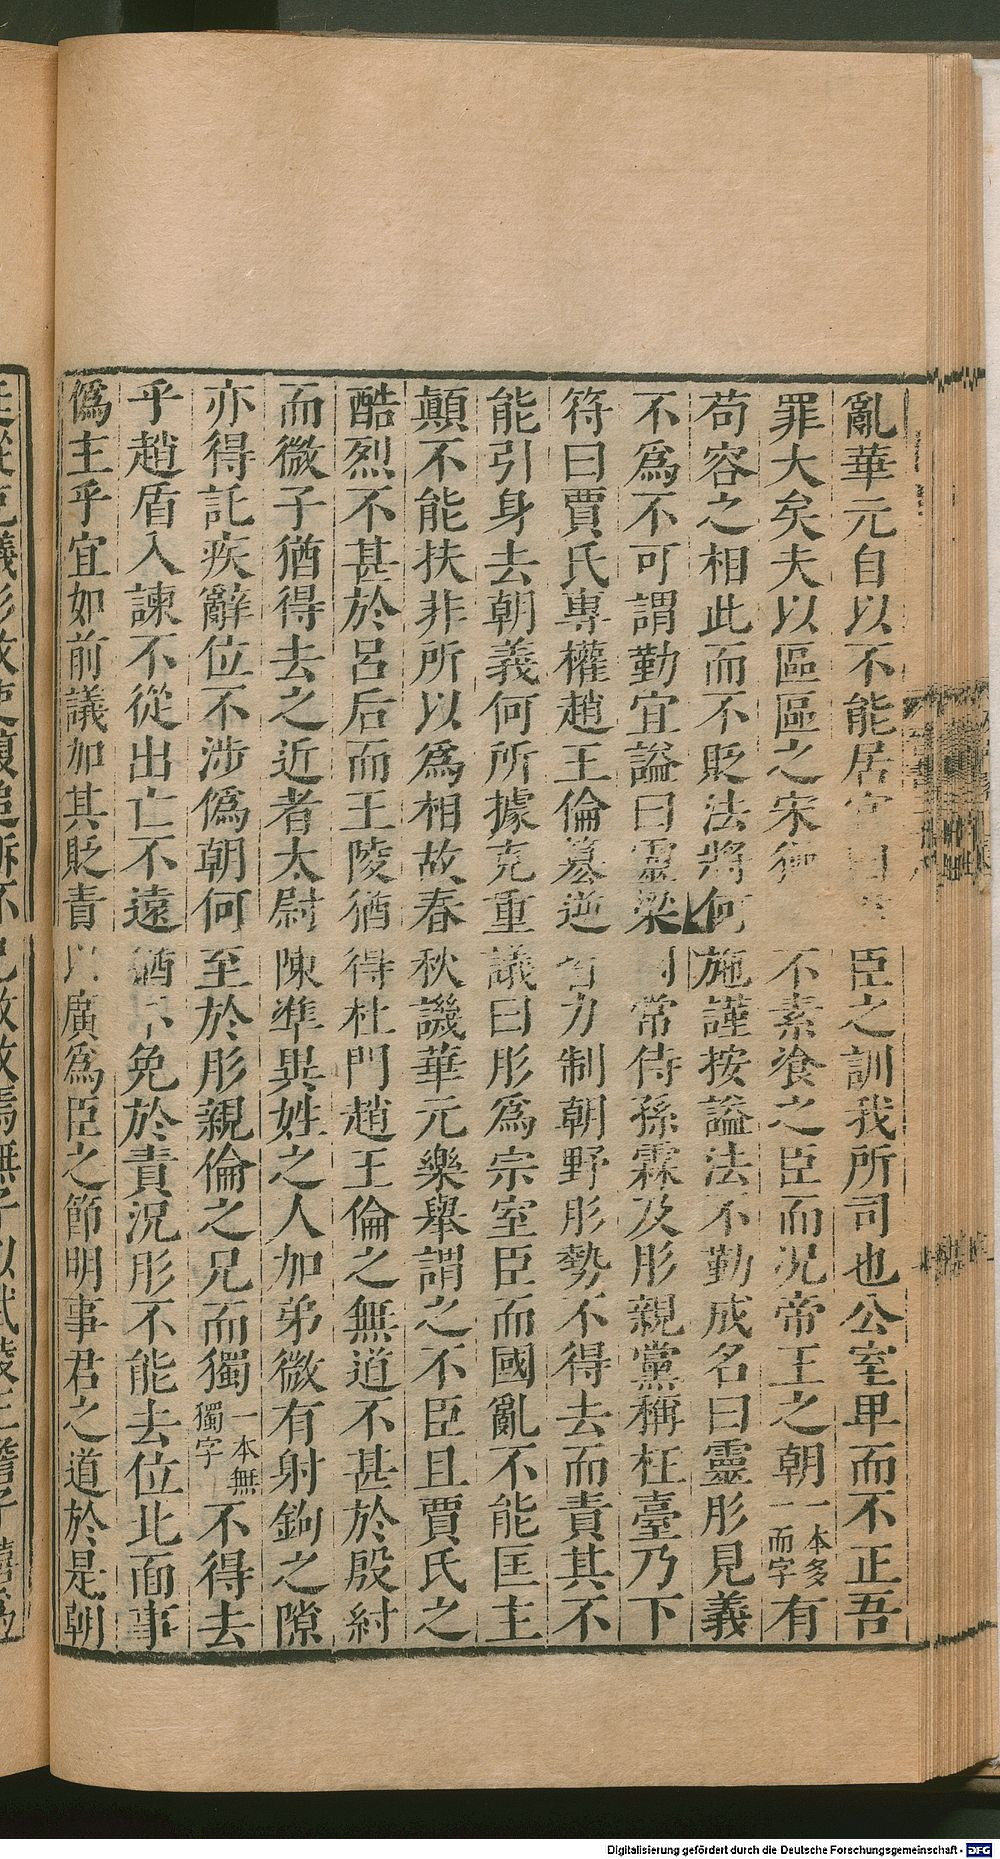 亂華元自以不能居官曰臣之訓我所司也公室卑而不正吾
罪大矣夫以區區之宋猶不素飡之臣而况帝王之朝一本多一而字有
苟容之相此而不貶法將何施謹按諡法不勤成名曰靈肜見義
不爲不可謂勤宜諡曰靈梁常侍孫霖及肜親黨稱枉臺乃下
符曰賈氏專權趙王倫簒逆皆力制朝野肜勢不得去而責其不
能引身去朝義何所據克重議曰肜爲宗室臣而國亂不能匡主
顛不能扶非所以爲相故春秋譏華元樂舉謂之不臣且賈氏之
酷烈不甚於呂后而王陵猶得杜門趙王倫之無道不甚於殷紂
而微子猶得去之近者太尉陳準異姓之人加弟微有射鉤之隙
亦得託疾辭位不涉僞朝何至於肜親倫之兄而獨一本無獨字不得去
乎趙盾入諫不從出亡不遠猶不免於責況肜不能去位北面事
僞主乎宜如前議加其貶責以廣爲臣之節明事君之道於是朝
Digitalisierung gefördert durch die Deutsche Forschungsgemeinschaft - DFG